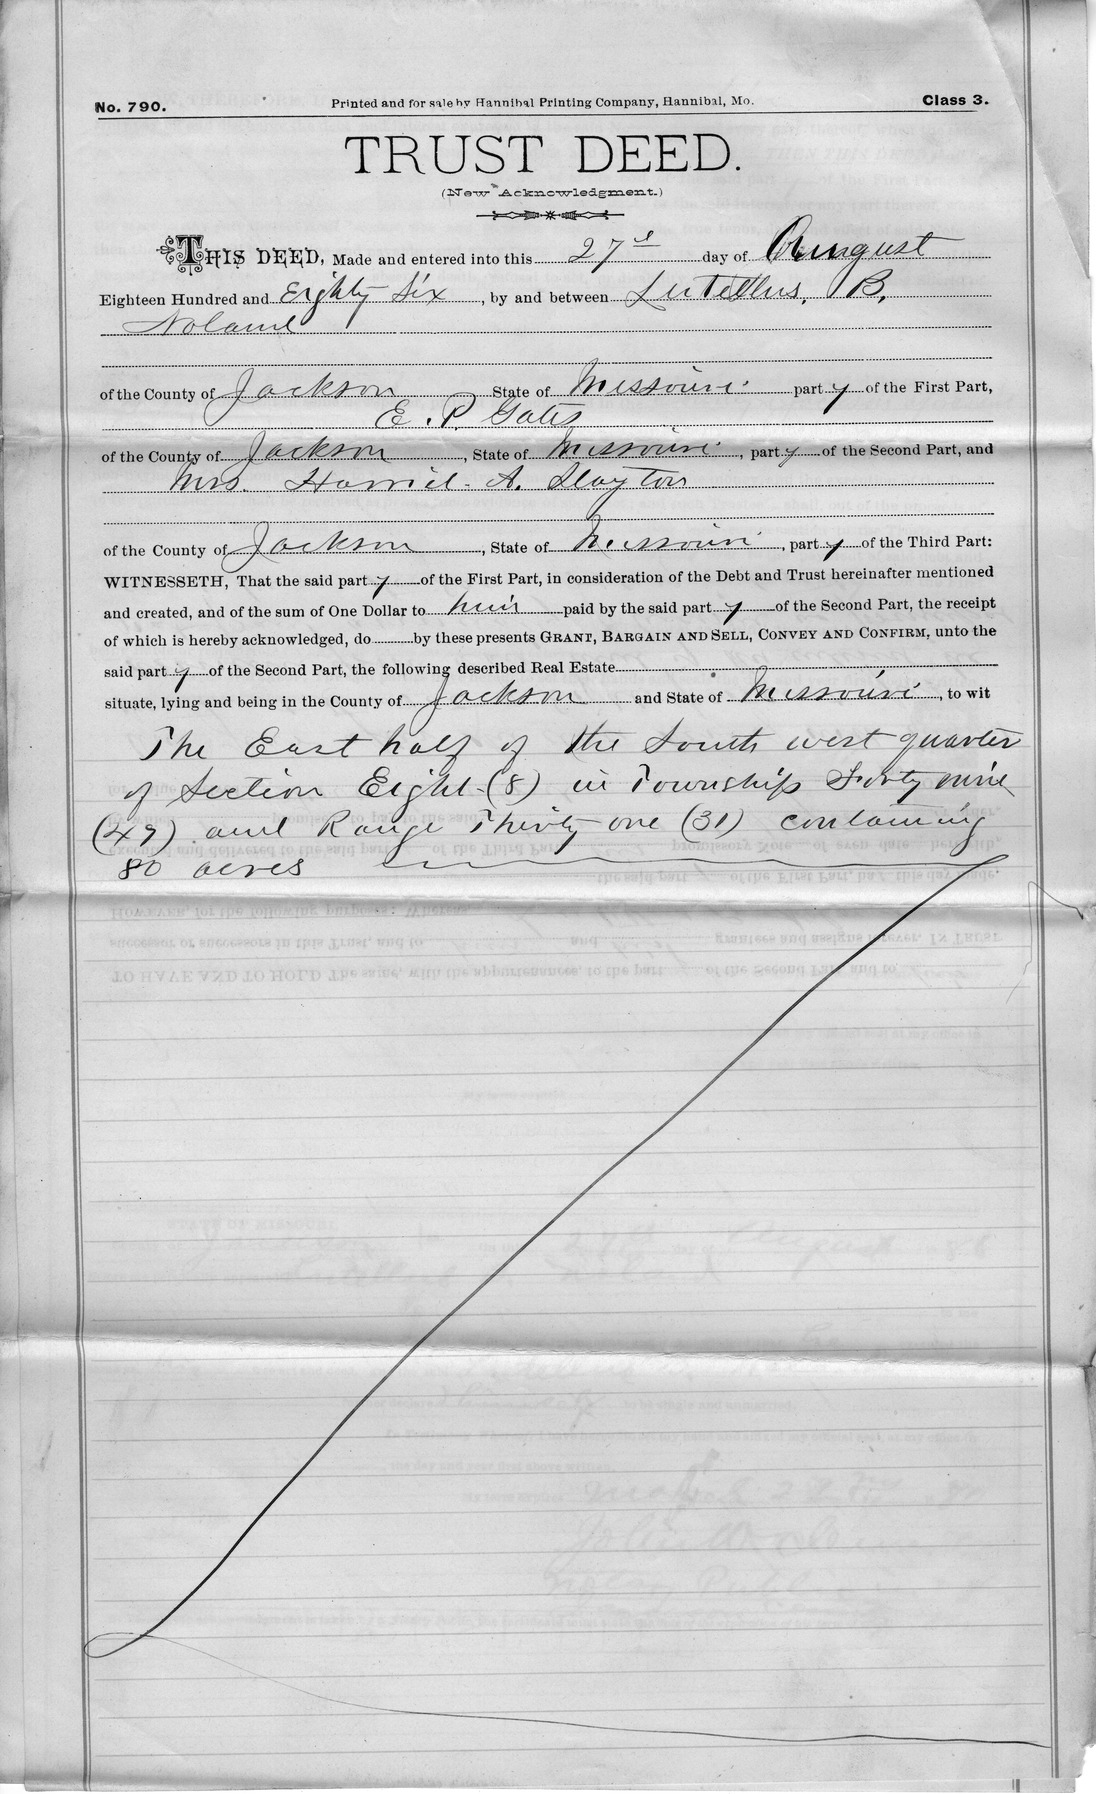 No. 790.
Printed and for sale by Hannibal Printing Company, Hannibal, Mo.
Class 3.
TRUST DEED.
(New Acknowledgment.)
THIS DEED, Made and entered into this 27th day of August
Eighteen Hundred and Eighty Six, by and between Lutellus. B.
Noland
of the County of Jackson State of Missouri party of the First Part,
E. P. Gates
of the County of Jackson, State of Missouri, party of the Second Part, and
Mrs. Harriet A. Slayton
of the County of Jackson, State of Missouri, party of the Third Part:
WITNESSETH, That the said party of the First Part, in consideration of the Debt and Trust hereinafter mentioned
and created, and of the sum of One Dollar to him paid by the said party of the Second Part, the receipt
of which is hereby acknowledged, do by these presents GRANT, BARGAIN AND SELL, CONVEY AND CONFIRM, unto the
said party of the Second Part, the following described Real Estate
situate, lying and being in the County of Jackson and State of Missouri, to wit
The East half of the South west quarter
of Section Eight (8) in Township Forty nine
(49) and Range Thirty one (31) containing
80 acres